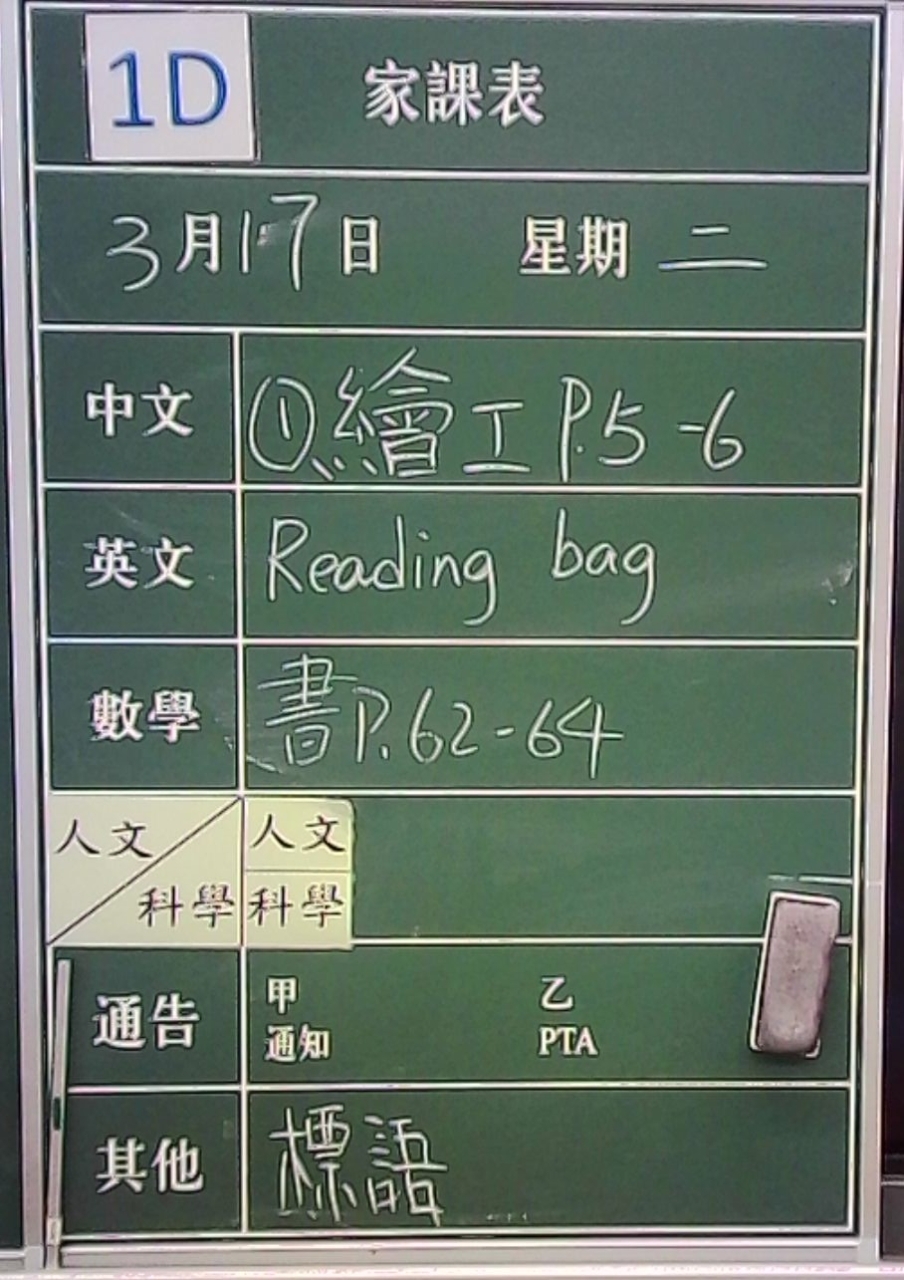 1D 家課表
3月17日 星期二
中文 ①繪工 P.5-6
英文 Reading bag
數學 書P.62-64
人文 人文
科學 科學
通告 甲 乙
通知 PTA
其他 標語